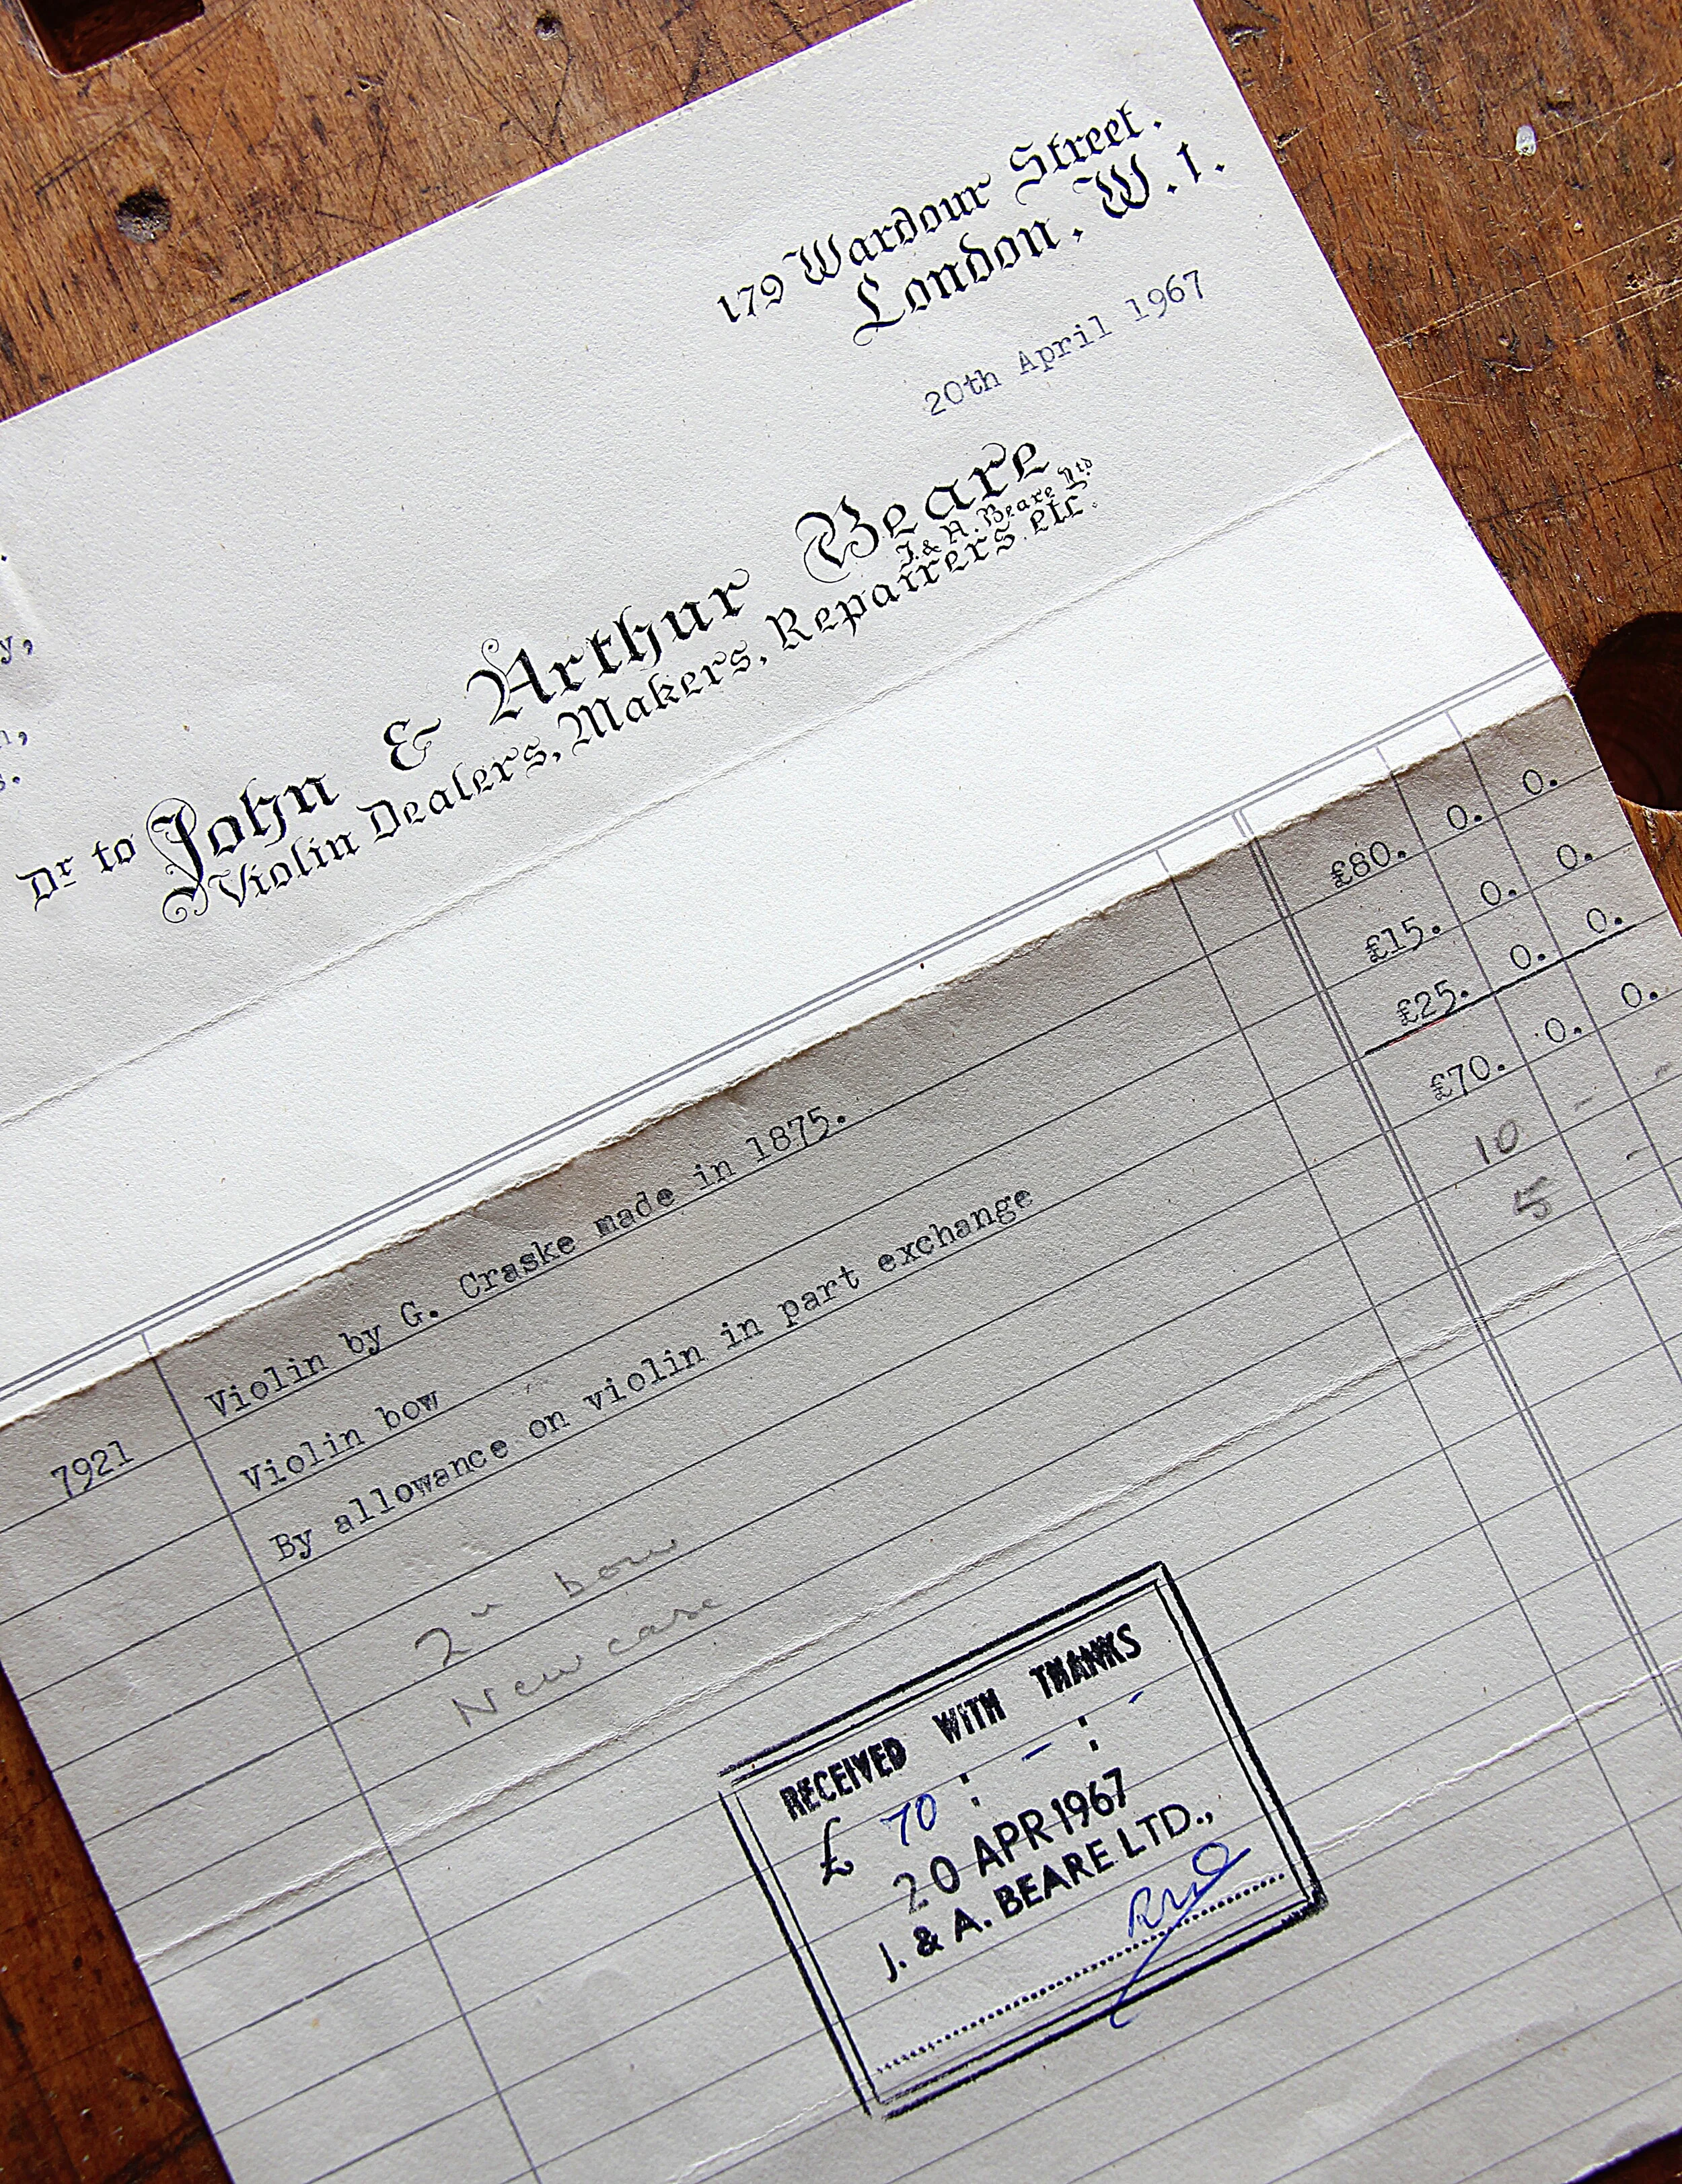 179 Wardour Street.
London. W.1.
20th April 1967
y,
Dr to John & Arthur Beare
J. & A. Beare Ltd
Violin Dealers, Makers, Repairers. etc.
7921 Violin by G. Craske made in 1875. £80. 0. 0.
Violin bow £15. 0. 0.
By allowance on violin in part exchange £25. 0. 0.
£70. 0. 0.
2" bow 10 - -
New case 5 -
RECEIVED WITH THANKS
£ 70 : - : -
20 APR 1967
J. & A. BEARE LTD.,